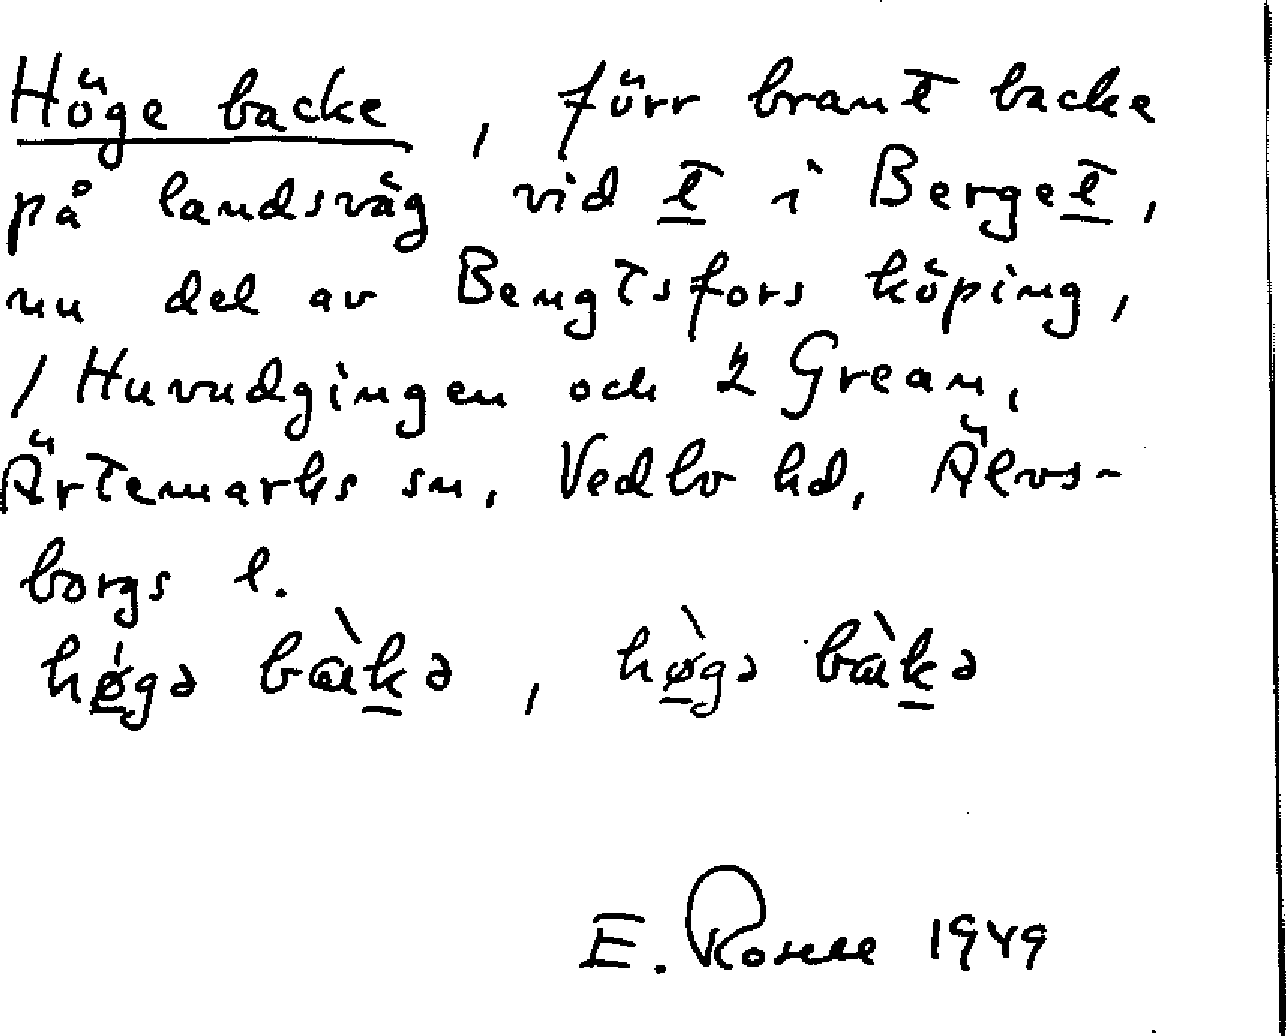 Höge backe, förr brant backe
på landsväg vid t i Berget,
nu del av Bengtsfors köping,
1 Huvudgingen och 2 Grean,
Ärtemarks sn, Vedbo hd, Älvs-
borgs l.
hǿ̱gə bàḵə, hø̱̀gə bàḵə
E. Rosell 1949